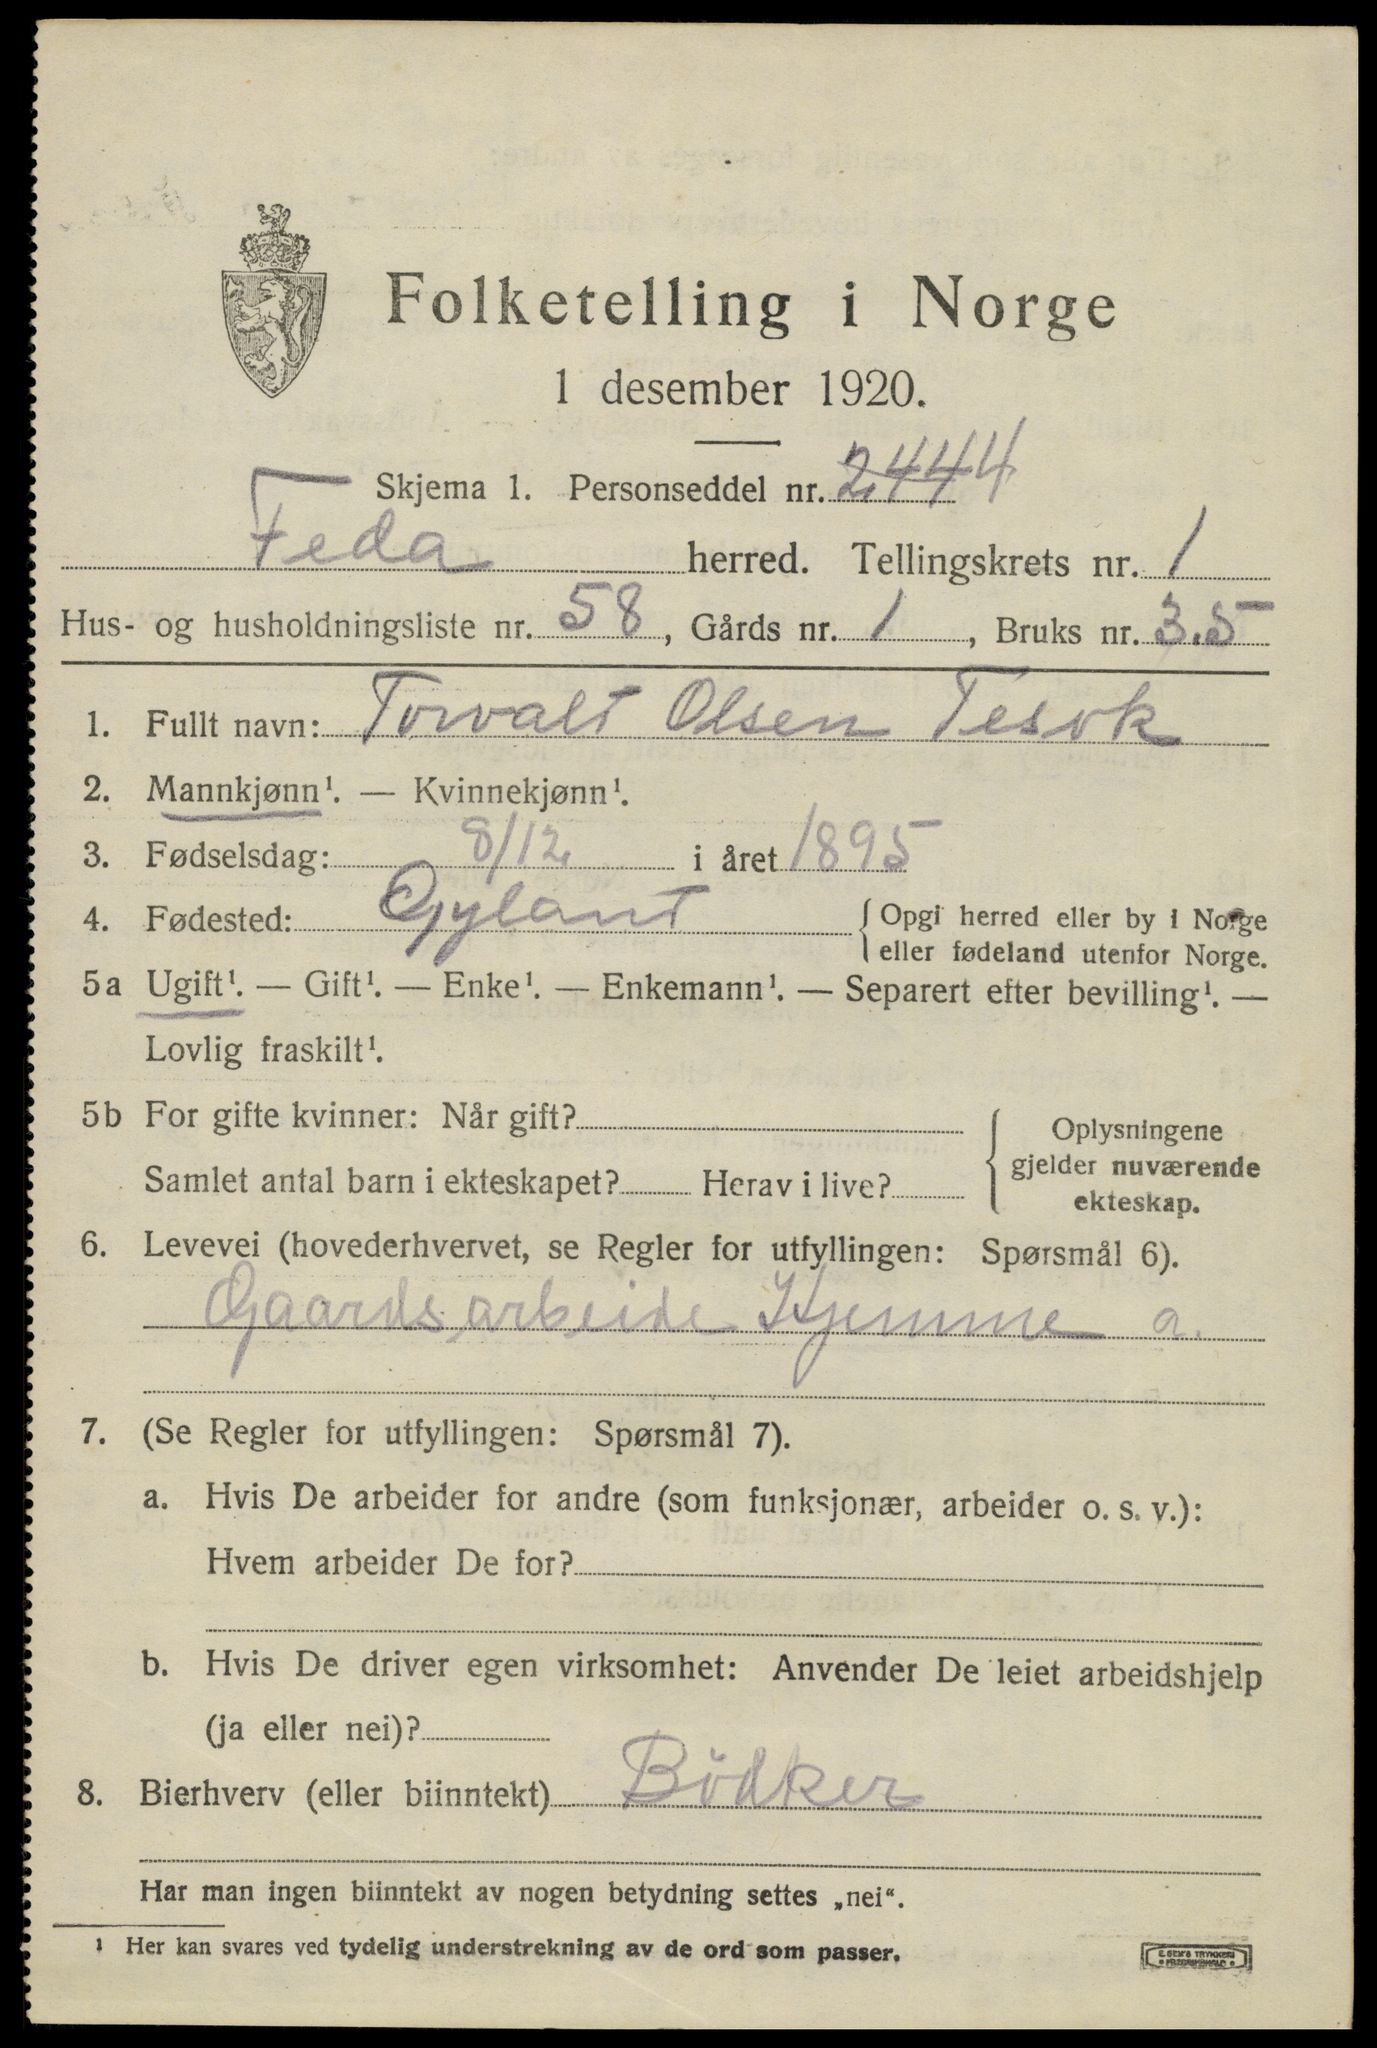 Folketelling i Norge
1 desember 1920.
Skjema 1. Personseddel nr. 2444
Feda herred. Tellingskrets nr. 1
Hus- og husholdningsliste nr. 58, Gårds nr. 1, Bruks nr. 3.5
1. Fullt navn: Torvalt Olsen Tesvk
2. Mannkjønn¹. — Kvinnekjønn¹.
3. Fødselsdag: 8/12 i året 1895
4. Fødested: Gylant {Opgi herred eller by i Norge
eller fødeland utenfor Norge.
5a Ugift¹. — Gift¹. — Enke¹. — Enkemann¹. — Separert efter bevilling¹. —
Lovlig fraskilt¹.
5b For gifte kvinner: Når gift?
Samlet antal barn i ekteskapet? Herav i live?
Oplysningene
gjelder nuværende
ekteskap.
6. Levevei (hovederhvervet, se Regler for utfyllingen: Spørsmål 6).
Gaardsarbeide Hjemme a.
7. (Se Regler for utfyllingen: Spørsmål 7).
a. Hvis De arbeider for andre (som funksjonær, arbeider o. s. v.):
Hvem arbeider De for?
b. Hvis De driver egen virksomhet: Anvender De leiet arbeidshjelp
(ja eller nei)?
8. Bierhverv (eller biinntekt) Bödker
Har man ingen biinntekt av nogen betydning settes „nei“.
¹ Her kan svares ved tydelig understrekning av de ord som passer.
E. SEM'S TRYKKERI
FREDRIKSHALD